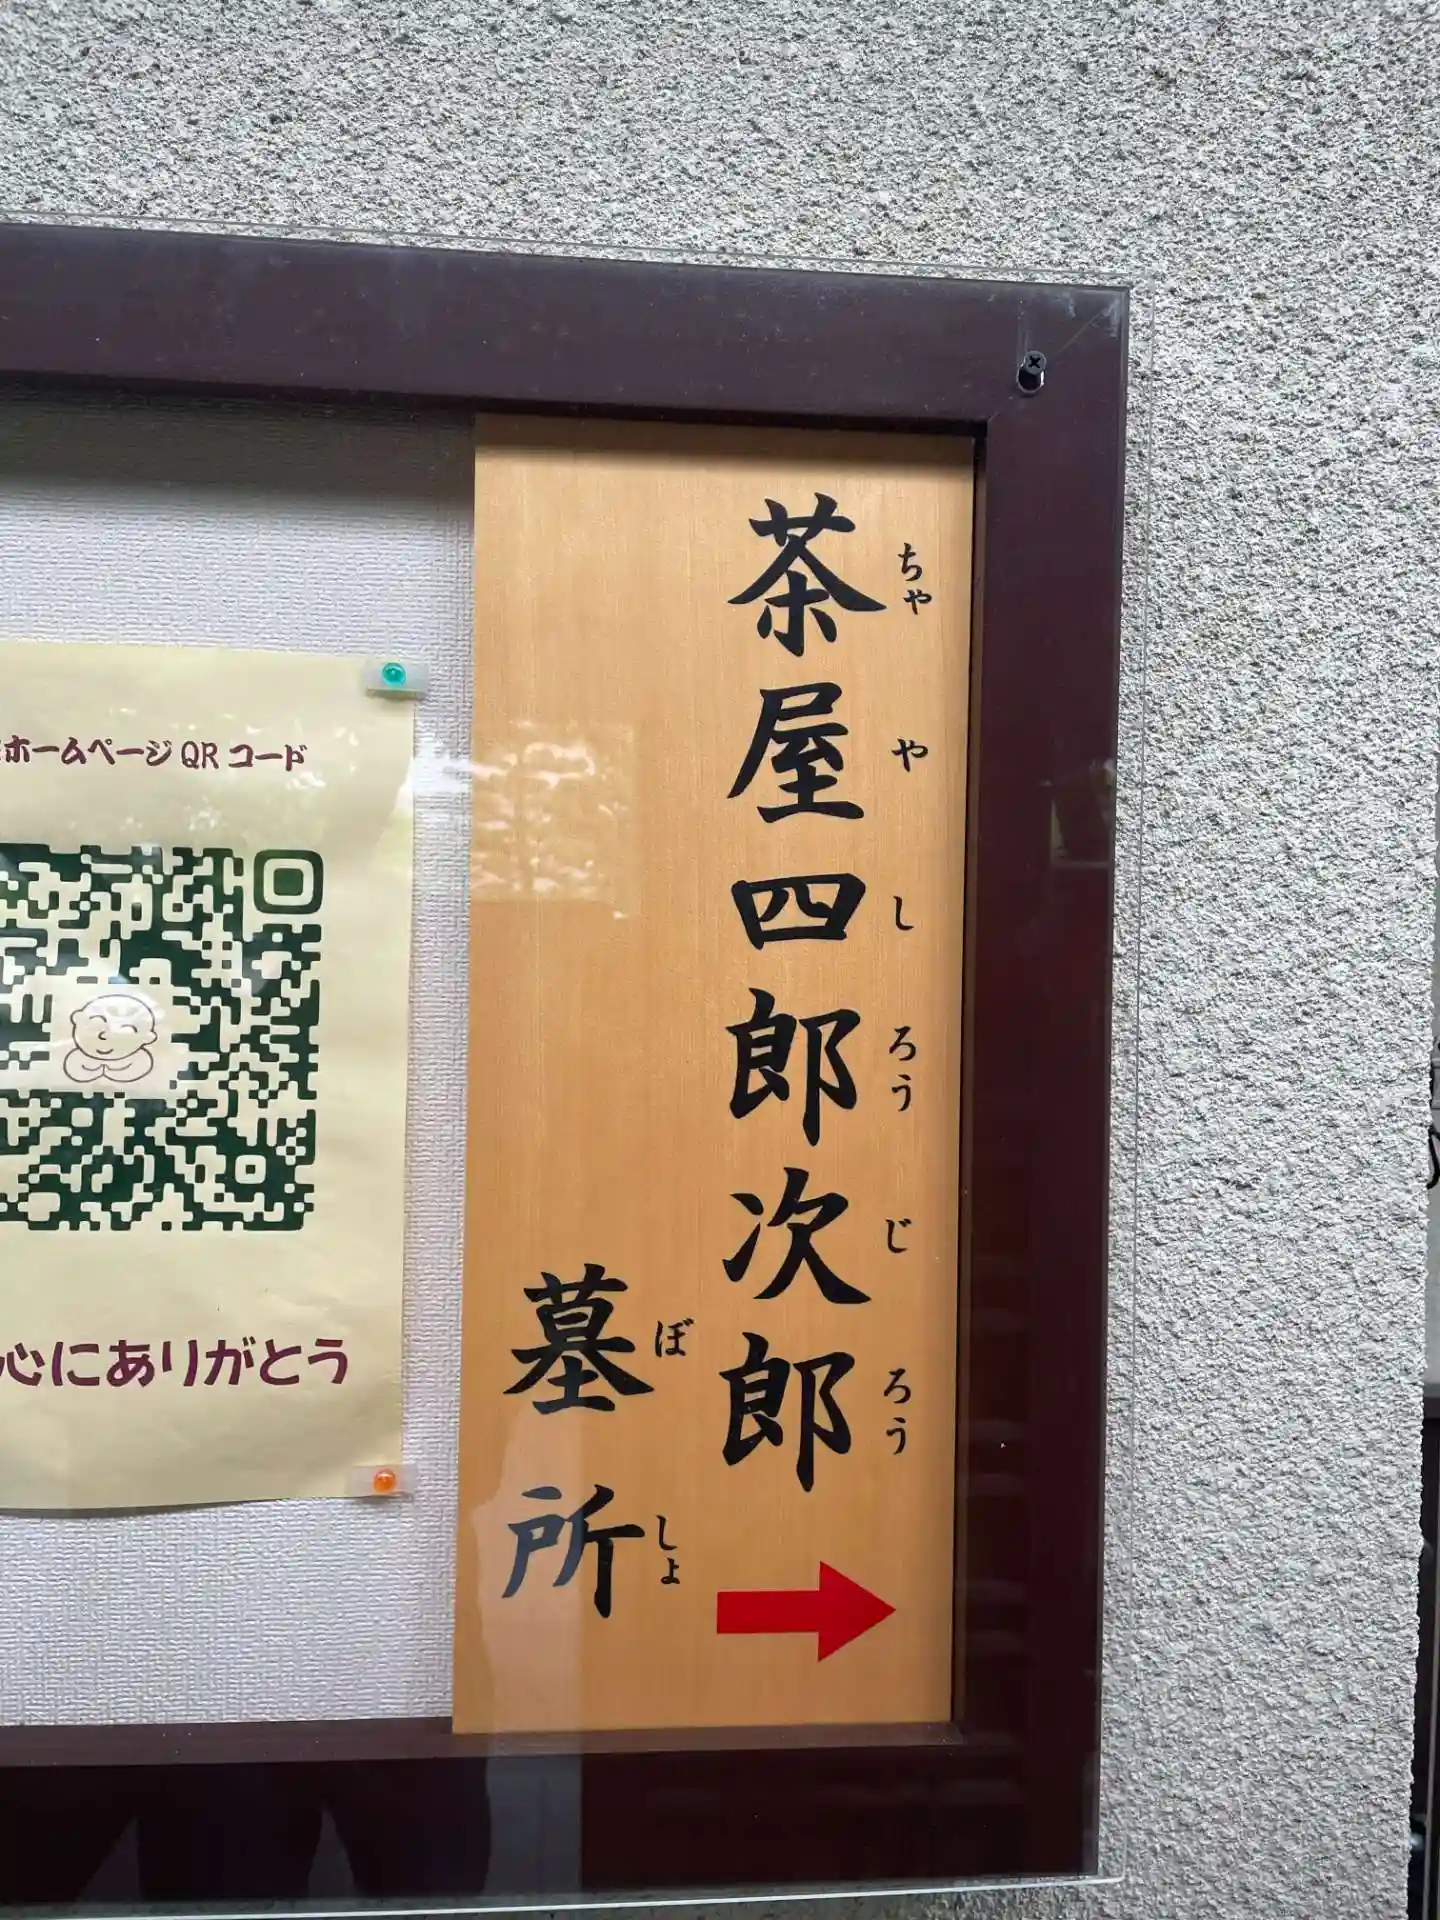 茶屋四郎次郎
ちゃやしろうじろう
墓所
ぼしょ
ホームページQRコード
心にありがとう